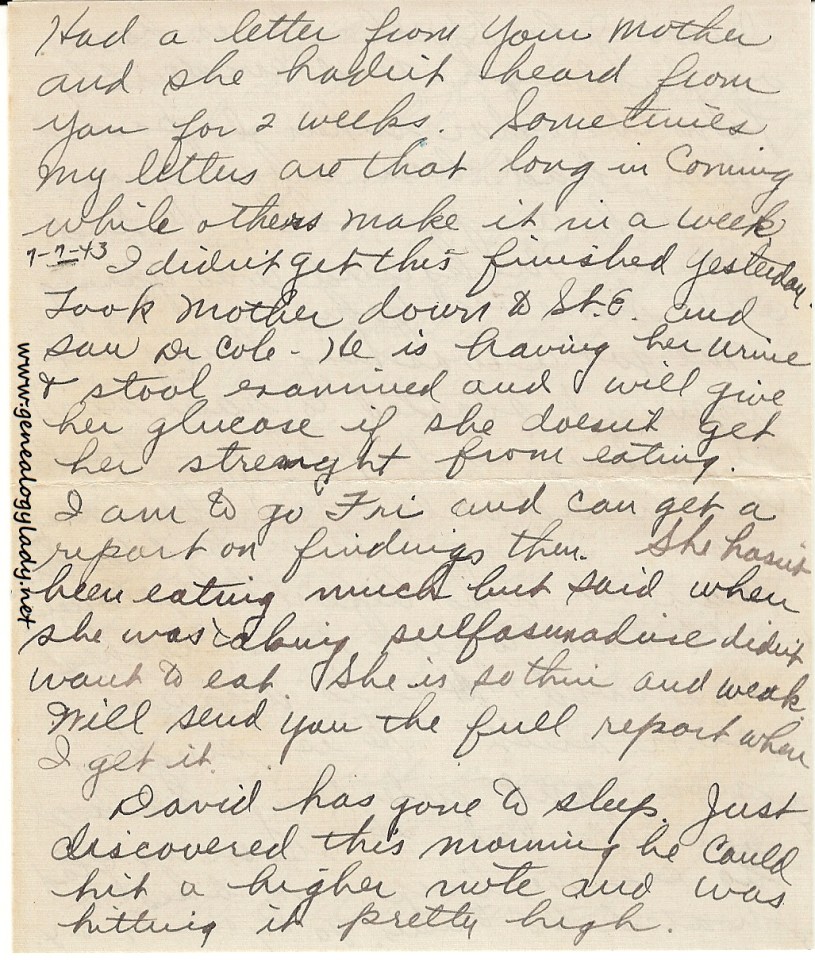 Had a letter from your mother
and she hadn't heard from
you for 2 weeks. Sometimes
my letters are that long in coming
while others make it in a week
7-7-43 I didn't get this finished yesterday.
Took mother down to St. E. and
saw Dr Cole - He is having her urine
& stool examined and will give
her glucose if she doesn't get
her strenght from eating.
I am to go Fri and can get a
report on findings then. She hasn't
been eating much but said when
she was taking sulfasunadine didn't
want to eat. She is so thin and weak.
Will send you the full report when
I get it.
David has gone to sleep. Just
discovered this morning he could
hit a higher note and was
hitting it pretty high.
www.genealogylady.net